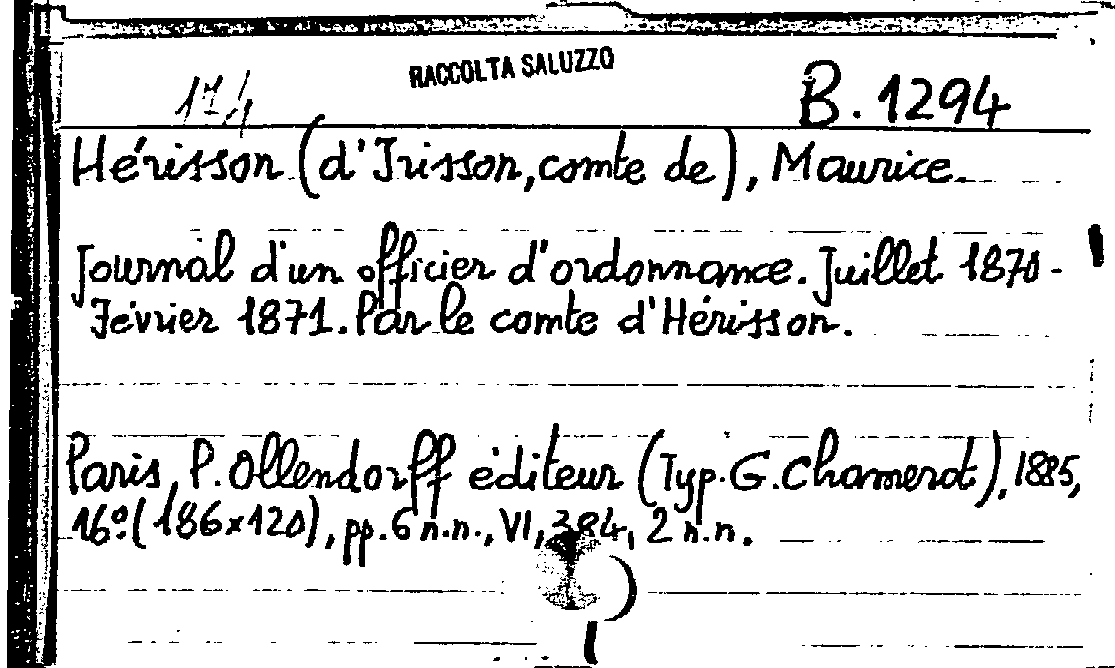 RACCOLTA SALUZZO
174 B. 1294
Hérisson (d'Irisson, comte de), Maurice.
Journal d'un officier d'ordonnance. Juillet 1870-
Février 1871. Par le comte d'Hérisson.
Paris, P. Ollendorff éditeur (Typ. G. Chamerot), 1885,
16º (186x120), pp. 6 n.n., VI, 384, 2 n.n.